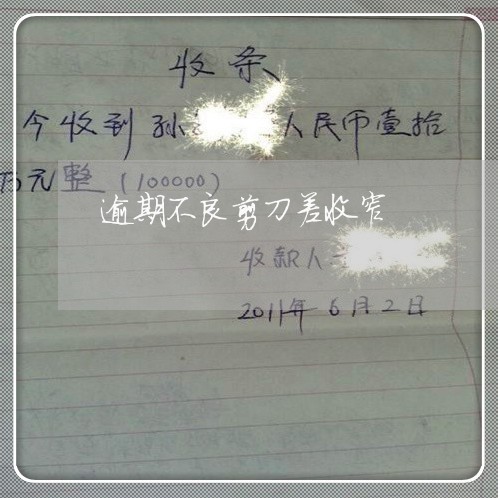 收条
今收到孙 人民币壹拾
万元整(100000)
逾期不良剪刀差收窄
收款人
2011年6月2日